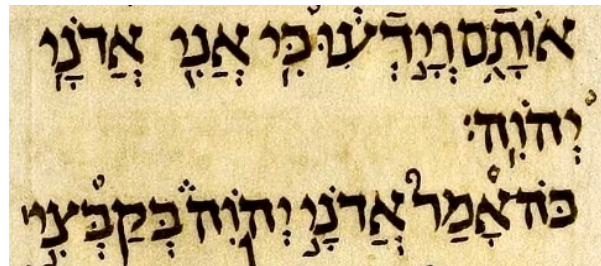 אוֹתָ֑ם וְיָ֣דְע֔וּ כִּ֥י אֲנִ֖י אֲדֹנָ֥י
יְהֹוִֽה׃
כֹּה אָמַר֮ אֲדֹנָ֣י יְהֹוִה֒ בְּקַבְּצִ֣י